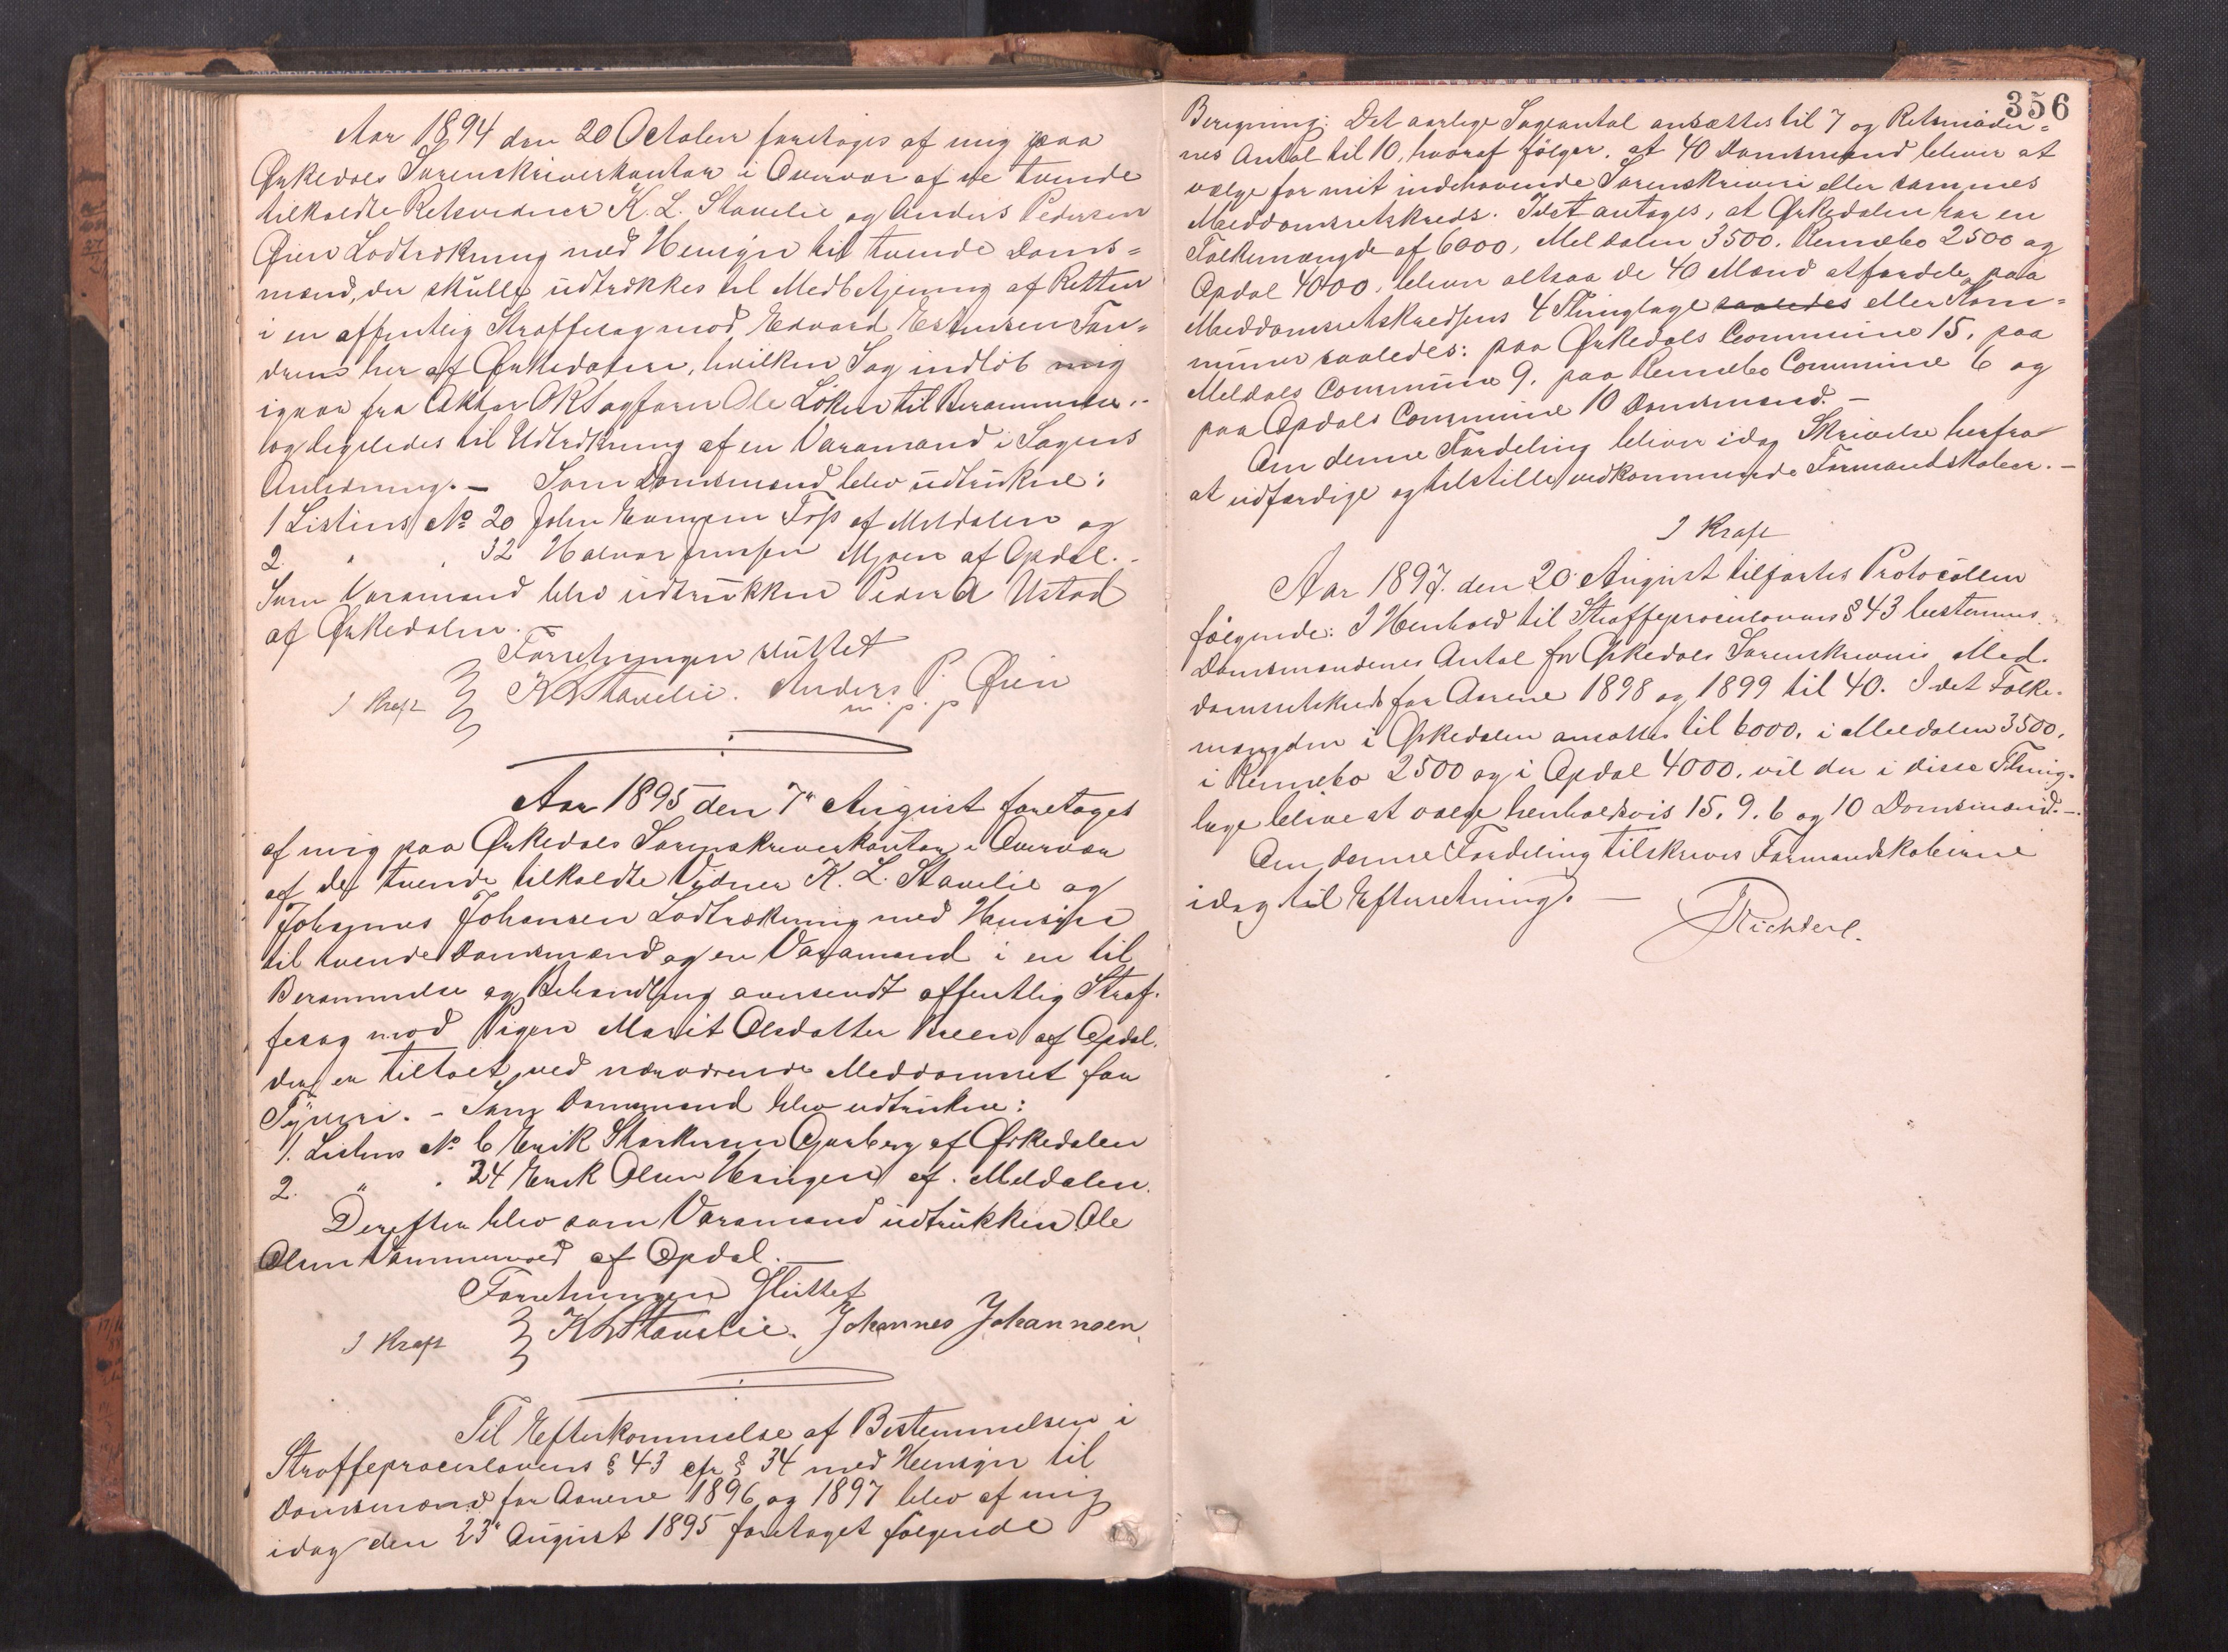 Aar 1894 den 20 October foretoges af mig paa
Ørkedals Sorenskriverkontor i Overvær af de tvende
tilkaldte Retsvidner K. L. Stavelie og Anders Pedersen
Øien Lodtrækning med Hensyn til tvende Doms=
mænd, der skulle udtrækkes til Medbetjening af Retten
i en offentlig Straffesag mod Edvard Estensen
her af Ørkedalen, hvilken Sag indløb mig
igaar fra Aktor ORSagfører Ole Løken til Berammelse,
og ligeledes til Udtrækning af en Varamand i Sagens
Anledning. — Som Domsmænd blev udtrukne:
1 Listens No 20 John Evensen Foss af Meldalen og
2. " " 32 Halvor Jensen Mjøen af Opdal.-
Som Varamand blev udtrukken Peder A Ustad
af Ørkedalen. —
Forretningen sluttet
J Kraft K L Stavelie. Anders P. Øien
m. p. p
Aar 1895 den 7de August foretoges
af mig paa Ørkedals Sorenskriverkontor i Overvær
af de tvende tilkaldte Vidner K. L. Stavelie og
Johannes Johansen Lodtrækning med Hensyn
til tvende Domsmænd og en Varamand i en til
Berammelse og Behandling oversendt offentlig Straf-
fesag mod Pigen Marit Olsdatter af Opdal,
der er tiltalt ved nærværende Meddomsret for
Tyveri. - Som Domsmænd blev udtrukne:
1. Listens No 6 Erik Størksen Garberg af Ørkedalen
2. " " 24 Erik Olsen af Meldalen.
Derefter blev som Varamand udtrukken Ole
Olsen af Opdal. —
Forretningen sluttet
J Kraft K L Stavelie. Johannes Johannsen
Til Efterkommelse af Bestemmelsen i
Straffeproceslovens § 43 cfr § 34 med Hensyn til
Domsmænd for Aarene 1896 og 1897 blev af mig
idag den 23de August 1895 foretaget følgende
356
Beregning: Det aarlige Sagantal ansættes til 7 og Retsmøder=
nes Antal til 10, hvoraf følger, at 40 Domsmænd bliver at
vælge for mit indehavende Sorenskriveri eller sammes
Meddomsretskreds. Idet antages, at Ørkedalen har en
Folkemængde af 6000, Meldalen 3500, Rennebo 2500 og
Opdal 4000, bliver altsaa de 40 Mænd at fordele paa
Meddomsretskredsens 4 Thinglage saaledes eller Kom=
muner saaledes: paa Ørkedals Commune 15, paa
Meldals Commune 9, paa Rennebo Commune 6 og
paa Opdals Commune 10 Domsmænd. —
Om denne Fordeling bliver idag Skrivelse herfra
at udfærdige og tilstille vedkommende Formandskaber. —
J Kraft
Aar 1897 den 20 August tilførtes Protocollen
følgende: I Henhold til Straffeproceslovens § 43 bestemmes
Domsmændenes Antal for Ørkedals Sorenskriveris Med-
domsretskreds for Aarene 1898 og 1899 til 40. Idet Folke-
mængden i Ørkedalen ansættes til 6000, i Meldalen 3500,
i Rennebo 2500 og i Opdal 4000, vil der i disse Thing-
lage blive at vælge henholdsvis 15, 9, 6 og 10 Domsmænd. —
Om denne Fordeling tilskrives Formandskaberne
idag til Efterretning. —
Richter.